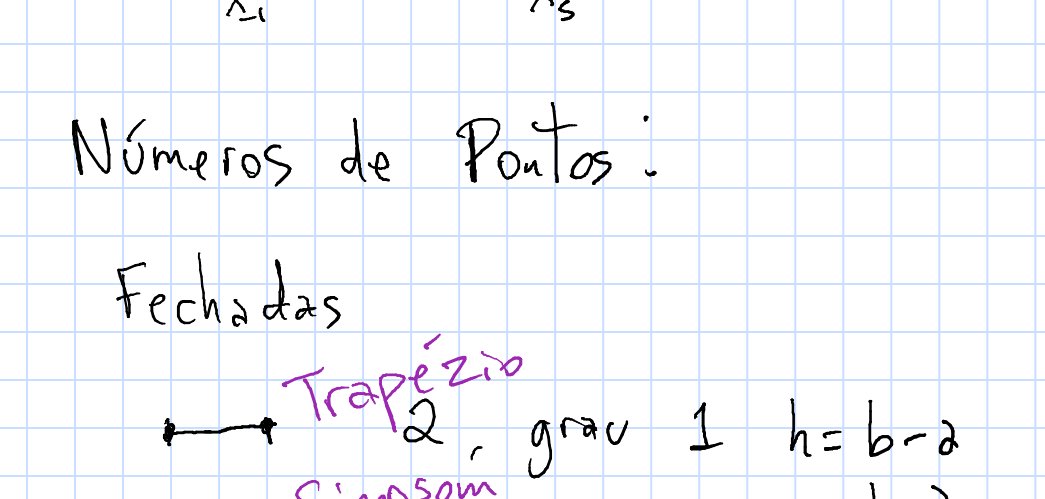 Números de Pontos:
Fechadas
Trapézio
2, grau 1 h=b-a
Simpsom